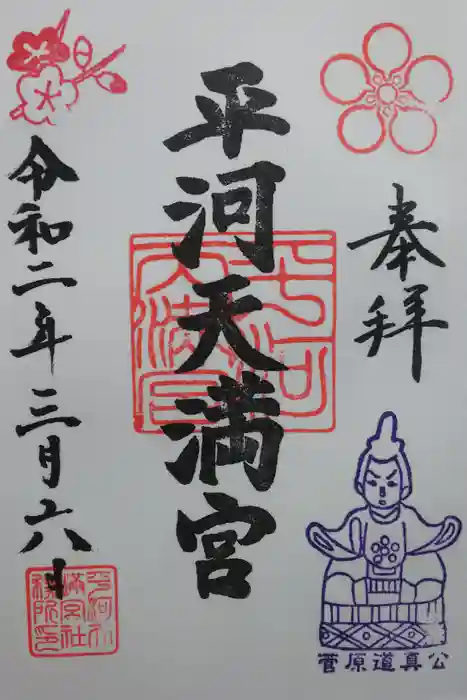 奉拝
平河天満宮
平河
天満宮
令和二年三月六日
菅原道真公